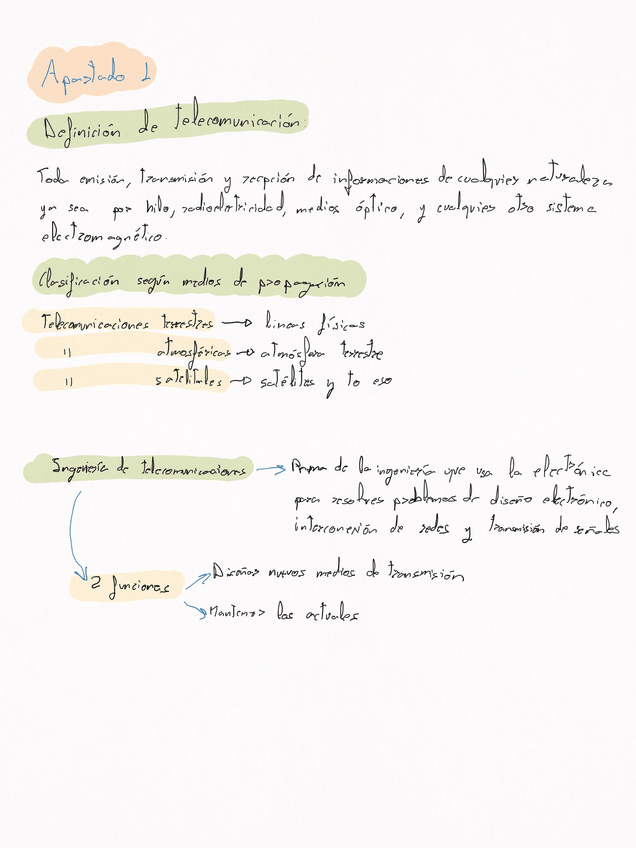 Apartado 1
Definición de telecomunicación:
Toda emisión, transmisión y recpción de informaciones de cualquier naturaleza
ya sea por hilo, radioelctricidad, medios óptico, y cualquier otro sistema
electromagnético.
Clasificación según medios de propagación
Telecomunicaciones terrestres → lineas físicas
" atmosféricas → atmósfera terrestre
" satelitales → satélites y to eso
Ingeniería de telecomunicaciones → Rama de la ingeniería que usa la electrónica
para resolver problemas de diseño electrónico,
interconexión de redes y transmisión de señales
2 funciones
Diseñar nuevos medios de transmisión
Mantener los actuales